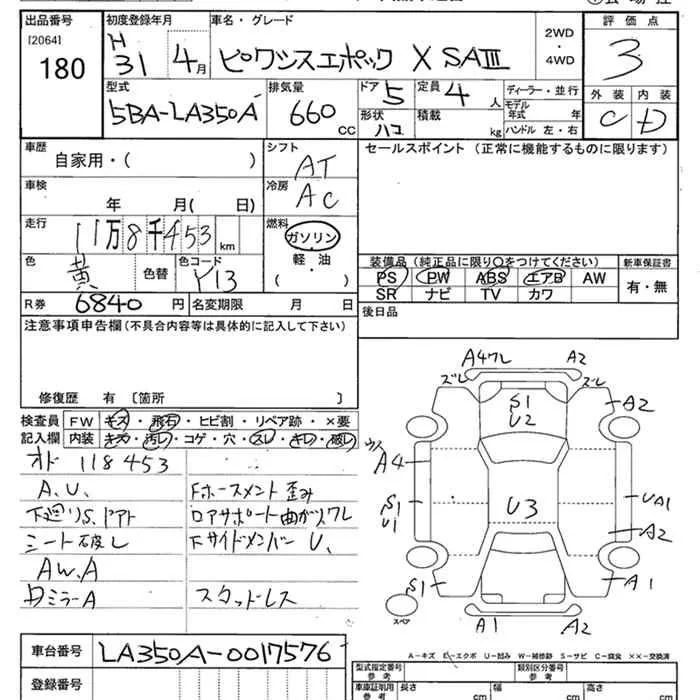 出品番号 初度登録年月 車名・グレード 2WD ・ 4WD 評価点
[2064] 180 H31 4月 ピクシスエポック X SAIII 3
型式 排気量 ドア 5 定員 4人 ディーラー・並行 外装 内装
5BA-LA350A 660 CC 形状 ハコ 積載 kg モデル年式 年 C D
ハンドル 左・右
車歴 シフト セールスポイント (正常に機能するものに限ります)
自家用・( ) AT
車検 冷房
年 月( 日) AC
走行 燃料
11万8千453 km ガソリン
色 色コード 軽・油 装備品 (純正品に限り○をつけてください) 新車保証書
黄 色替 Y13 ( ) PS PW ABS エアB AW 有・無
R券 6840円 名変期限 月 日 SR ナビ TV カワ
注意事項申告欄(不具合内容等は具体的に記入して下さい) 後日品
修復歴 有 〔箇所 〕
検査員 FW キズ・飛石・ヒビ割・リペア跡・×要
記入欄 内装 キズ・汚レ・コゲ・穴・スレ・キレ・破レ
オド 118453
A.U、 Fホースメント歪み
下廻りS、ドアト ロアサポート曲がりワレ
シート破レ Fサイドメンバー U、
AW.A
DミラーA スタッドレス
A4ワレ A2
ズレ ズレ
S1 U2 A2
A4
S1 U1 U3 UA1
A2
S1 A1
スペア A1 A2
車台番号 LA350A-0017576
A-キズ E-エクボ U-凹み W-補修跡 S-サビ C-腐食 XX-交換済
登録番号 型式指定番号 参考 類別区分番号 参考
車庫証明用 参考 長さ cm 幅 cm 高さ cm